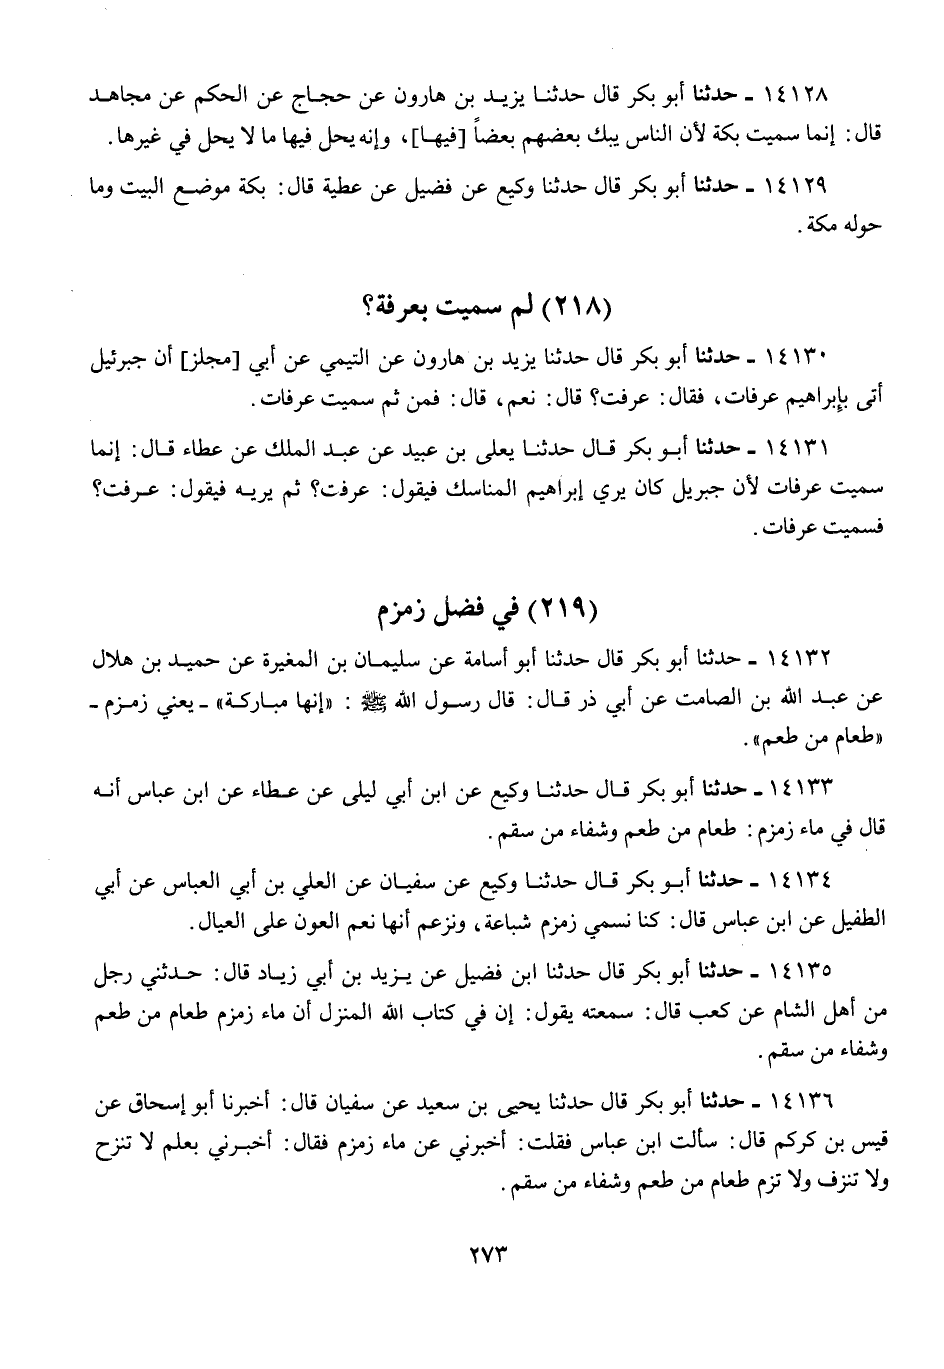 ١٤١٢٨ ـ حدثنا أبو بكر قال حدثنا يزيد بن هارون عن حجاج عن الحكم عن مجاهد
قال: إنما سميت بكة لأن الناس يبك بعضهم بعضاً [فيها]، وإنه يحل فيها ما لا يحل في غيرها.
١٤١٢٩ ـ حدثنا أبو بكر قال حدثنا وكيع عن فضيل عن عطية قال: بكة موضع البيت وما
حوله مكة.
(٢١٨) لم سميت بعرفة؟
١٤١٣٠ ـ حدثنا أبو بكر قال حدثنا يزيد بن هارون عن التيمي عن أبي [مجلز] أن جبرئيل
أتى بإبراهيم عرفات، فقال: عرفت؟ قال: نعم، قال: فمن ثم سميت عرفات.
١٤١٣١ ـ حدثنا أبو بكر قال حدثنا يعلى بن عبيد عن عبد الملك عن عطاء قال: إنما
سميت عرفات لأن جبريل كان يري إبراهيم المناسك فيقول: عرفت؟ ثم يريه فيقول: عرفت؟
فسميت عرفات.
(٢١٩) في فضل زمزم
١٤١٣٢ ـ حدثنا أبو بكر قال حدثنا أبو أسامة عن سليمان بن المغيرة عن حميد بن هلال
عن عبد الله بن الصامت عن أبي ذر قال: قال رسول الله ﷺ: «إنها مباركة» ـ يعني زمزم ـ
«طعام من طعم».
١٤١٣٣ ـ حدثنا أبو بكر قال حدثنا وكيع عن ابن أبي ليلى عن عطاء عن ابن عباس أنه
قال في ماء زمزم: طعام من طعم وشفاء من سقم.
١٤١٣٤ ـ حدثنا أبو بكر قال حدثنا وكيع عن سفيان عن العلي بن أبي العباس عن أبي
الطفيل عن ابن عباس قال: كنا نسمي زمزم شباعة، ونزعم أنها نعم العون على العيال.
١٤١٣٥ ـ حدثنا أبو بكر قال حدثنا ابن فضيل عن يزيد بن أبي زياد قال: حدثني رجل
من أهل الشام عن كعب قال: سمعته يقول: إن في كتاب الله المنزل أن ماء زمزم طعام من طعم
وشفاء من سقم.
١٤١٣٦ ـ حدثنا أبو بكر قال حدثنا يحيى بن سعيد عن سفيان قال: أخبرنا أبو إسحاق عن
قيس بن كركم قال: سألت ابن عباس فقلت: أخبرني عن ماء زمزم فقال: أخبرني بعلم لا تنزح
ولا تنزف ولا تزم طعام من طعم وشفاء من سقم.
٢٧٣